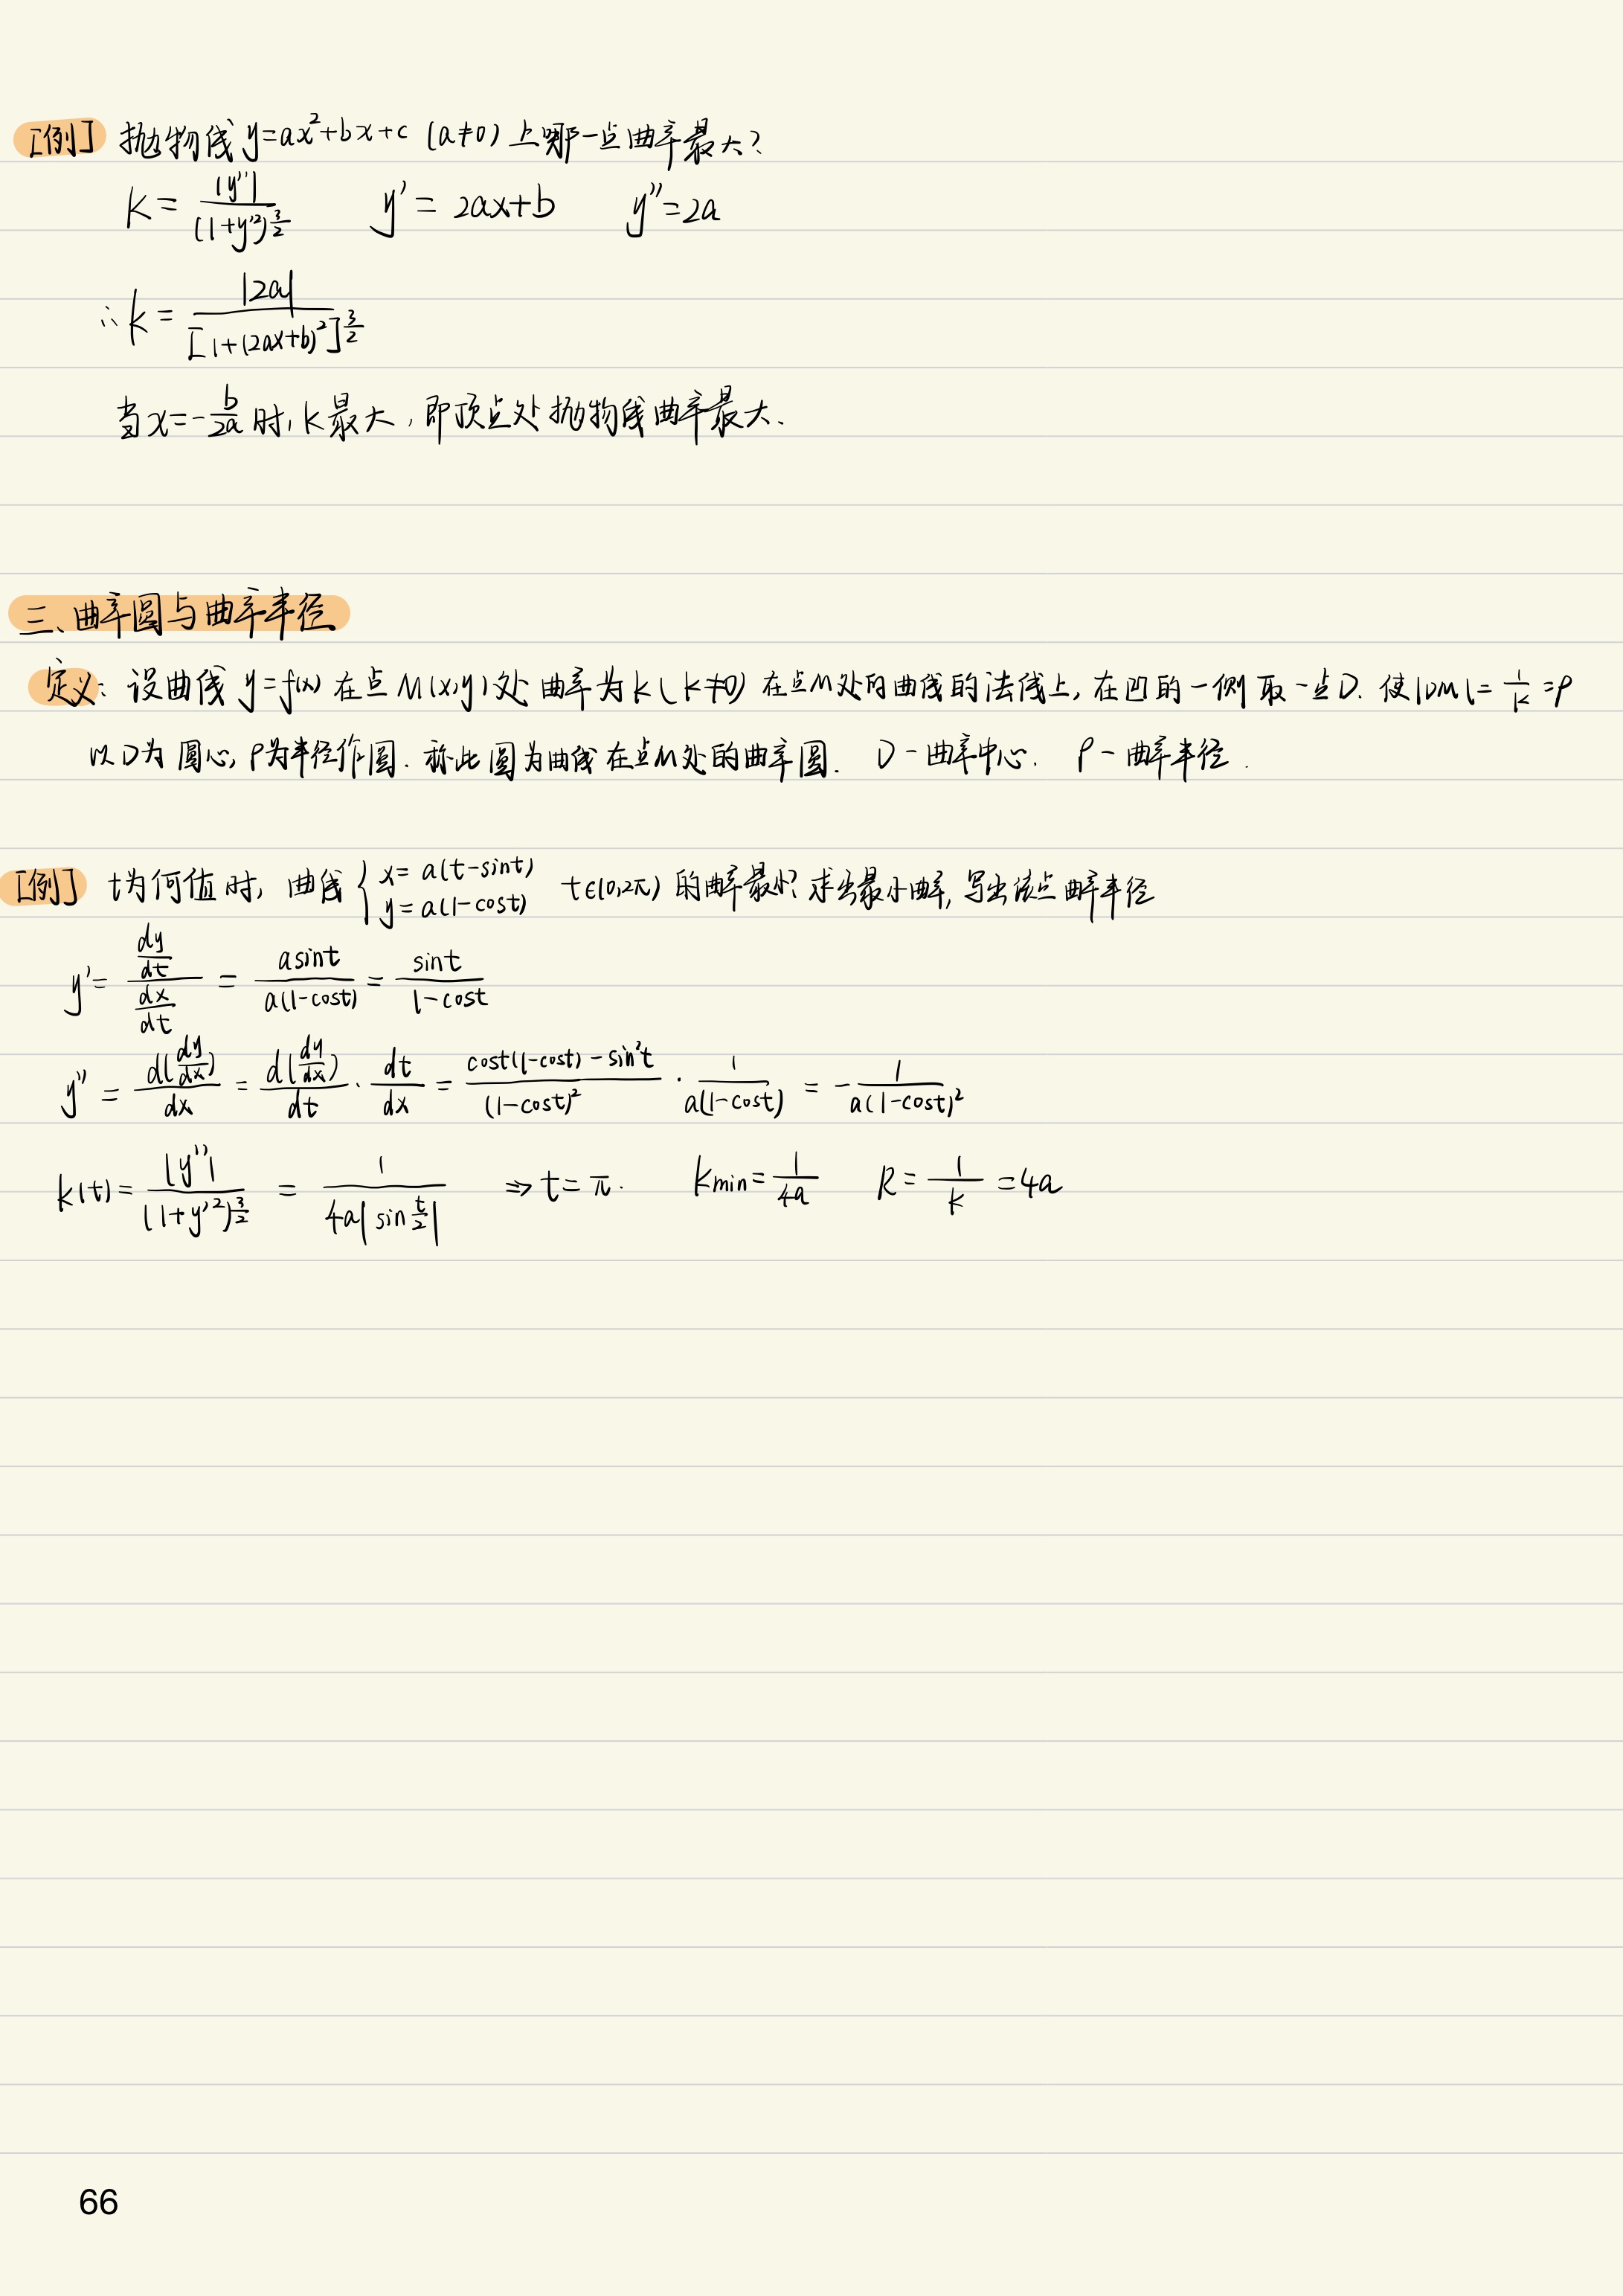 [例] 抛物线 y=ax²+bx+c (a≠0) 上哪一点曲率最大?
k = |y''| / (1+y'²)^(3/2)    y' = 2ax+b    y''=2a
∴ k = |2a| / [1+(2ax+b)²]^(3/2)
当 x=-b/2a 时, k 最大, 即顶点处抛物线曲率最大.
三、曲率圆与曲率半径
定义: 设曲线 y=f(x) 在点 M(x,y) 处曲率为 k (k≠0) 在点M处的曲线的法线上, 在凹的一侧取一点D. 使|DM|= 1/k =ρ
以D为圆心, ρ为半径作圆. 称此圆为曲线在点M处的曲率圆. D-曲率中心. ρ-曲率半径.
[例] t为何值时, 曲线 { x= a(t-sint) y= a(1-cost) t∈(0,2π) 的曲率最小? 求出最小曲率, 写出该点曲率半径
y' = (dy/dt)/(dx/dt) = asint / a(1-cost) = sint / 1-cost
y'' = d(dy/dx)/dx = d(dy/dx)/dt · dt/dx = cost(1-cost)-sin²t / (1-cost)² · 1/a(1-cost) = - 1/a(1-cost)²
k(t) = |y''| / (1+y'²)^(3/2) = 1 / 4a|sin t/2| ⇒ t= π. kmin= 1/4a R= 1/k =4a
66